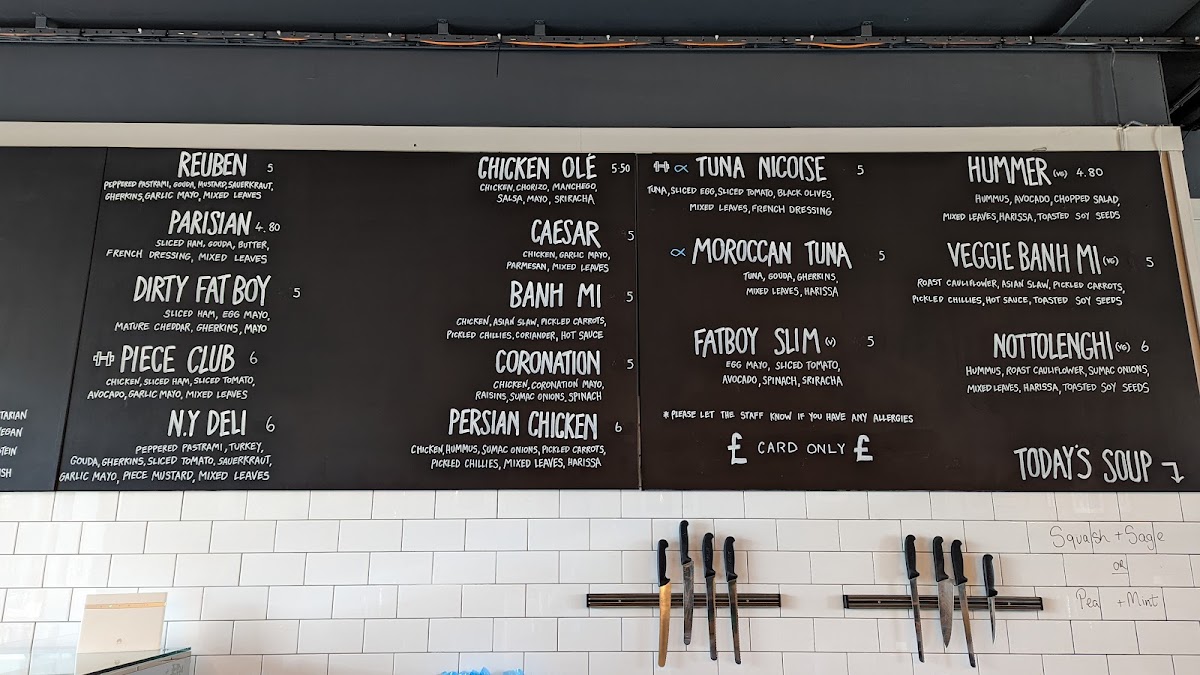 TARIAN
EGAN
TEIN
ISH
REUBEN 5
PEPPERED PASTRAMI, GOUDA, MUSTARD, SAUERKRAUT,
GHERKINS, GARLIC MAYO, MIXED LEAVES
PARISIAN 4.80
SLICED HAM, GOUDA, BUTTER,
FRENCH DRESSING, MIXED LEAVES
DIRTY FAT BOY 5
SLICED HAM, EGG MAYO,
MATURE CHEDDAR, GHERKINS, MAYO
PIECE CLUB 6
CHICKEN, SLICED HAM, SLICED TOMATO,
AVOCADO, GARLIC MAYO, MIXED LEAVES
N.Y DELI 6
PEPPERED PASTRAMI, TURKEY,
GOUDA, GHERKINS, SLICED TOMATO, SAUERKRAUT,
GARLIC MAYO, PIECE MUSTARD, MIXED LEAVES
CHICKEN OLÉ 5.50
CHICKEN, CHORIZO, MANCHEGO,
SALSA, MAYO, SRIRACHA
CAESAR 5
CHICKEN, GARLIC MAYO,
PARMESAN, MIXED LEAVES
BANH MI 5
CHICKEN, ASIAN SLAW, PICKLED CARROTS,
PICKLED CHILLIES, CORIANDER, HOT SAUCE
CORONATION 5
CHICKEN, CORONATION MAYO,
RAISINS, SUMAC ONIONS, SPINACH
PERSIAN CHICKEN 6
CHICKEN, HUMMUS, SUMAC ONIONS, PICKLED CARROTS,
PICKLED CHILLIES, MIXED LEAVES, HARISSA
TUNA NICOISE 5
TUNA, SLICED EGG, SLICED TOMATO, BLACK OLIVES,
MIXED LEAVES, FRENCH DRESSING
MOROCCAN TUNA 5
TUNA, GOUDA, GHERKINS,
MIXED LEAVES, HARISSA
FATBOY SLIM (V) 5
EGG MAYO, SLICED TOMATO,
AVOCADO, SPINACH, SRIRACHA
*PLEASE LET THE STAFF KNOW IF YOU HAVE ANY ALLERGIES
£ CARD ONLY £
HUMMER (VG) 4.80
HUMMUS, AVOCADO, CHOPPED SALAD,
MIXED LEAVES, HARISSA, TOASTED SOY SEEDS
VEGGIE BANH MI (VG) 5
ROAST CAULIFLOWER, ASIAN SLAW, PICKLED CARROTS,
PICKLED CHILLIES, HOT SAUCE, TOASTED SOY SEEDS
NOTTOLENGHI (VG) 6
HUMMUS, ROAST CAULIFLOWER, SUMAC ONIONS,
MIXED LEAVES, HARISSA, TOASTED SOY SEEDS
TODAY'S SOUP
Squash + Sage
OR
Pea + Mint